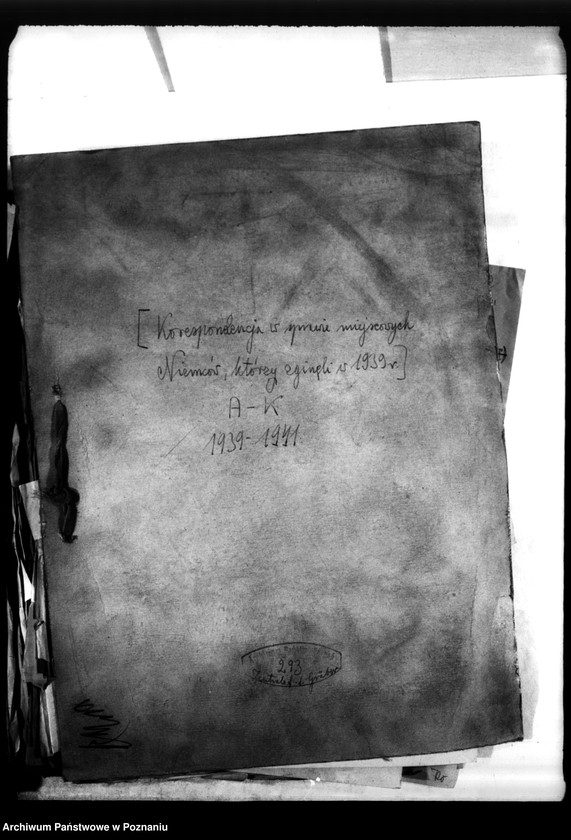 [Korespondencja w sprawie miejscowych
Niemców, którzy zginęli w 1939 r.]
A-K
1939-1941
293
Archiwum Państwowe w Poznaniu